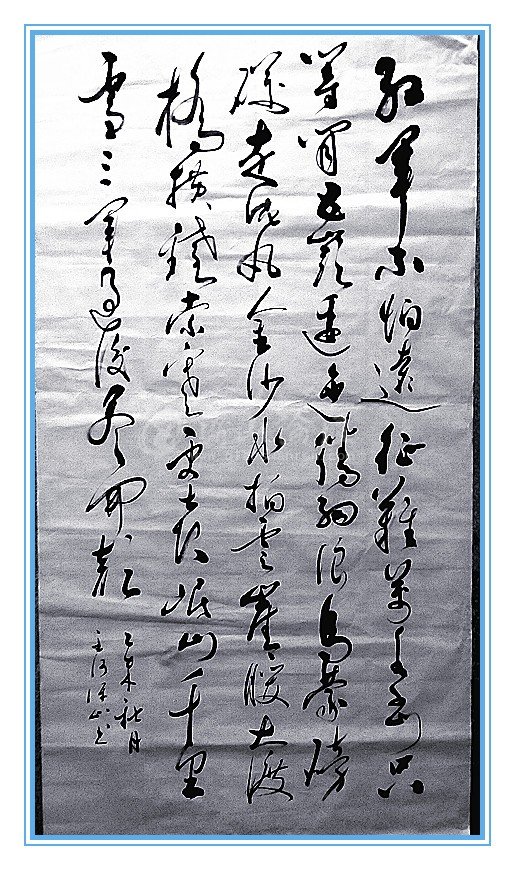 紅軍不怕遠征難萬水千山只
等閒五嶺逶迤騰細浪烏蒙磅
礴走泥丸金沙水拍雲崖暖大渡
橋橫鐵索寒更喜岷山千里
雪三軍過後盡開顏
乙未秋月